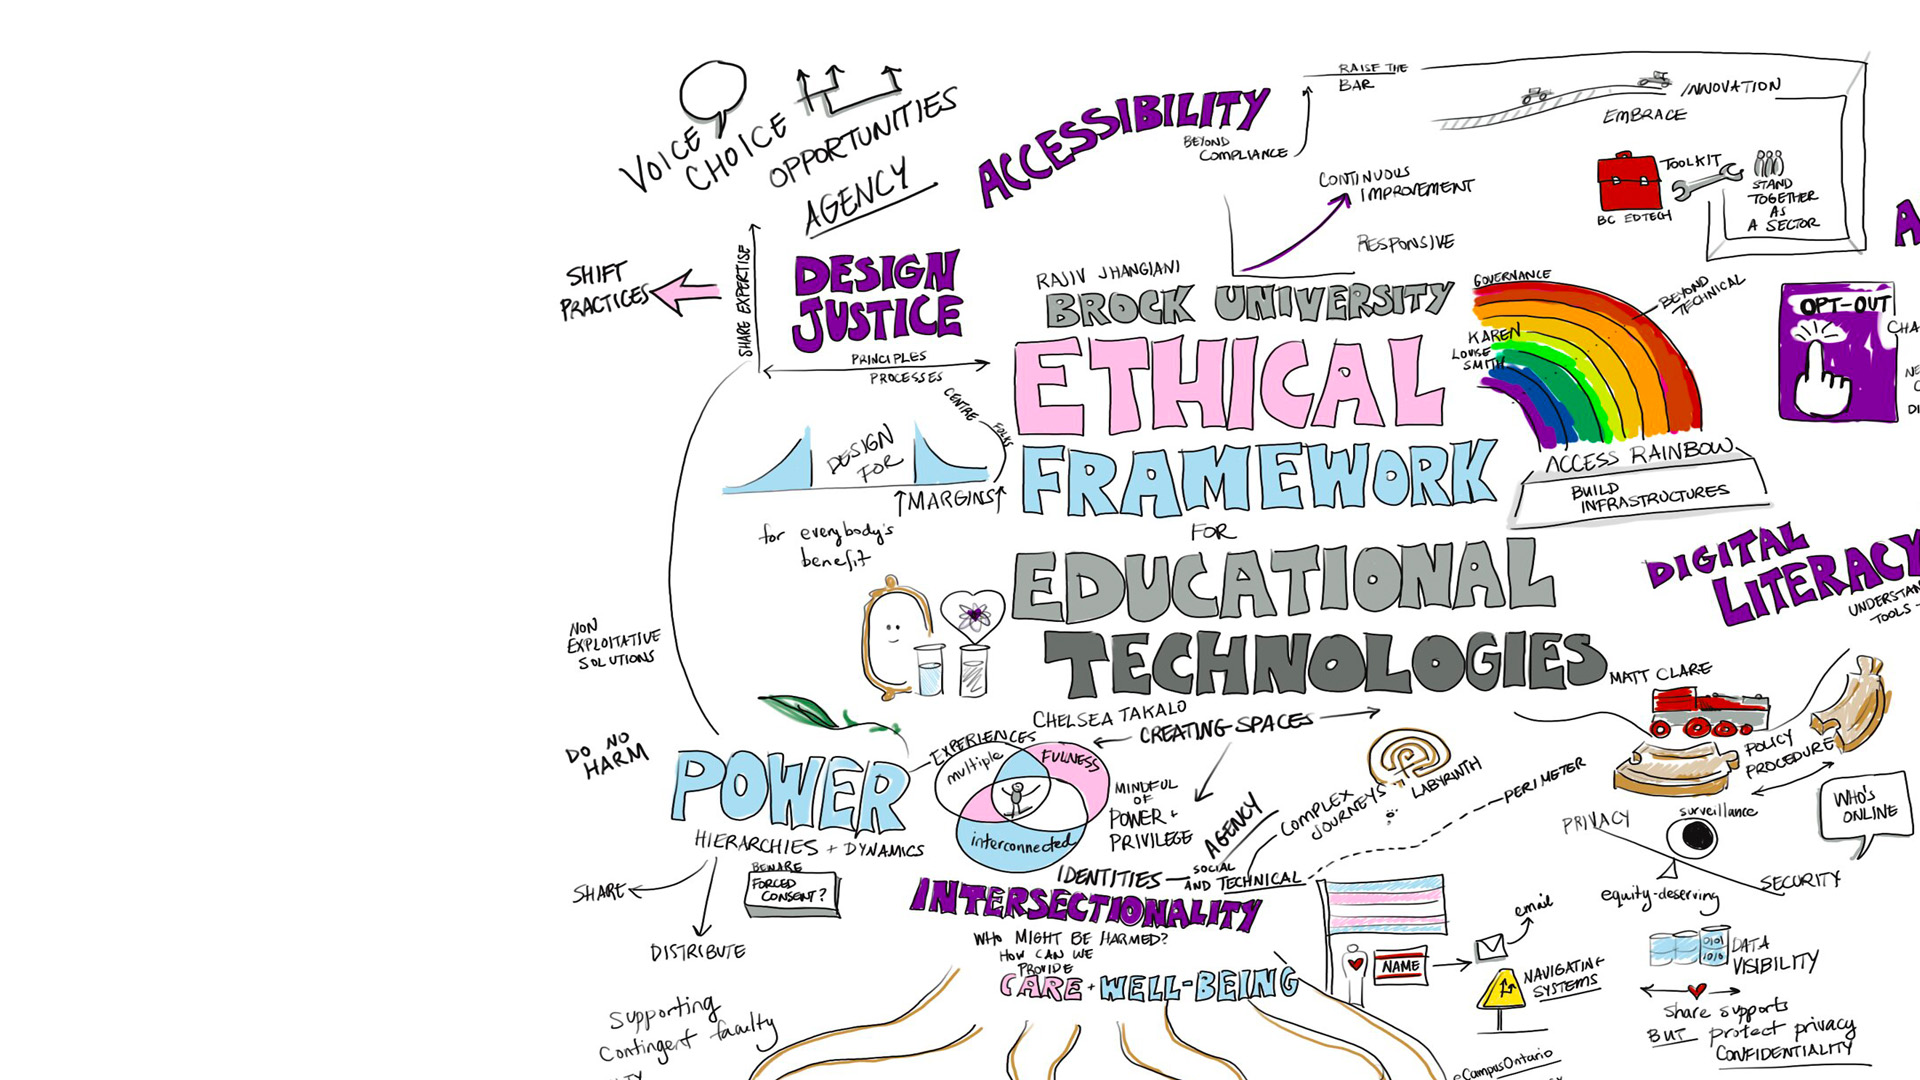 VOICE
CHOICE
OPPORTUNITIES
AGENCY
SHIFT
PRACTICES
SHARE EXPERTISE
DESIGN
JUSTICE
PRINCIPLES
PROCESSES
CENTRE
FOLKS
DESIGN
FOR
MARGINS
for everybody's
benefit
NON
EXPLOITATIVE
SOLUTIONS
DO NO
HARM
ACCESSIBILITY
BEYOND
COMPLIANCE
RAISE THE
BAR
CONTINUOUS
IMPROVEMENT
RESPONSIVE
INNOVATION
EMBRACE
TOOLKIT
BC EDTECH
STAND
TOGETHER
AS
A SECTOR
RAJIV JHANGIANI
BROCK UNIVERSITY
ETHICAL
FRAMEWORK
FOR
EDUCATIONAL
TECHNOLOGIES
GOVERNANCE
BEYOND
TECHNICAL
KAREN
LOUISE
SMITH
ACCESS RAINBOW
BUILD
INFRASTRUCTURES
OPT-OUT
DIGITAL
LITERACY
TOOLS
MATT CLARE
POLICY
PROCEDURE
WHO'S
ONLINE
PRIVACY
surveillance
SECURITY
equity-deserving
DATA
VISIBILITY
share supports
BUT protect privacy
CONFIDENTIALITY
CHELSEA TAKALO
CREATING SPACES
EXPERIENCES
multiple
FULNESS
interconnected
MINDFUL
OF
POWER +
PRIVILEGE
AGENCY
COMPLEX
JOURNEYS
LABYRINTH
PERIMETER
POWER
HIERARCHIES + DYNAMICS
BEWARE
FORCED
CONSENT?
SHARE
DISTRIBUTE
Supporting
contingent faculty
IDENTITIES
SOCIAL
AND TECHNICAL
INTERSECTIONALITY
WHO MIGHT BE HARMED?
HOW CAN WE
PROVIDE
CARE + WELL-BEING
NAME
email
NAVIGATING
SYSTEMS
eCampusOntario